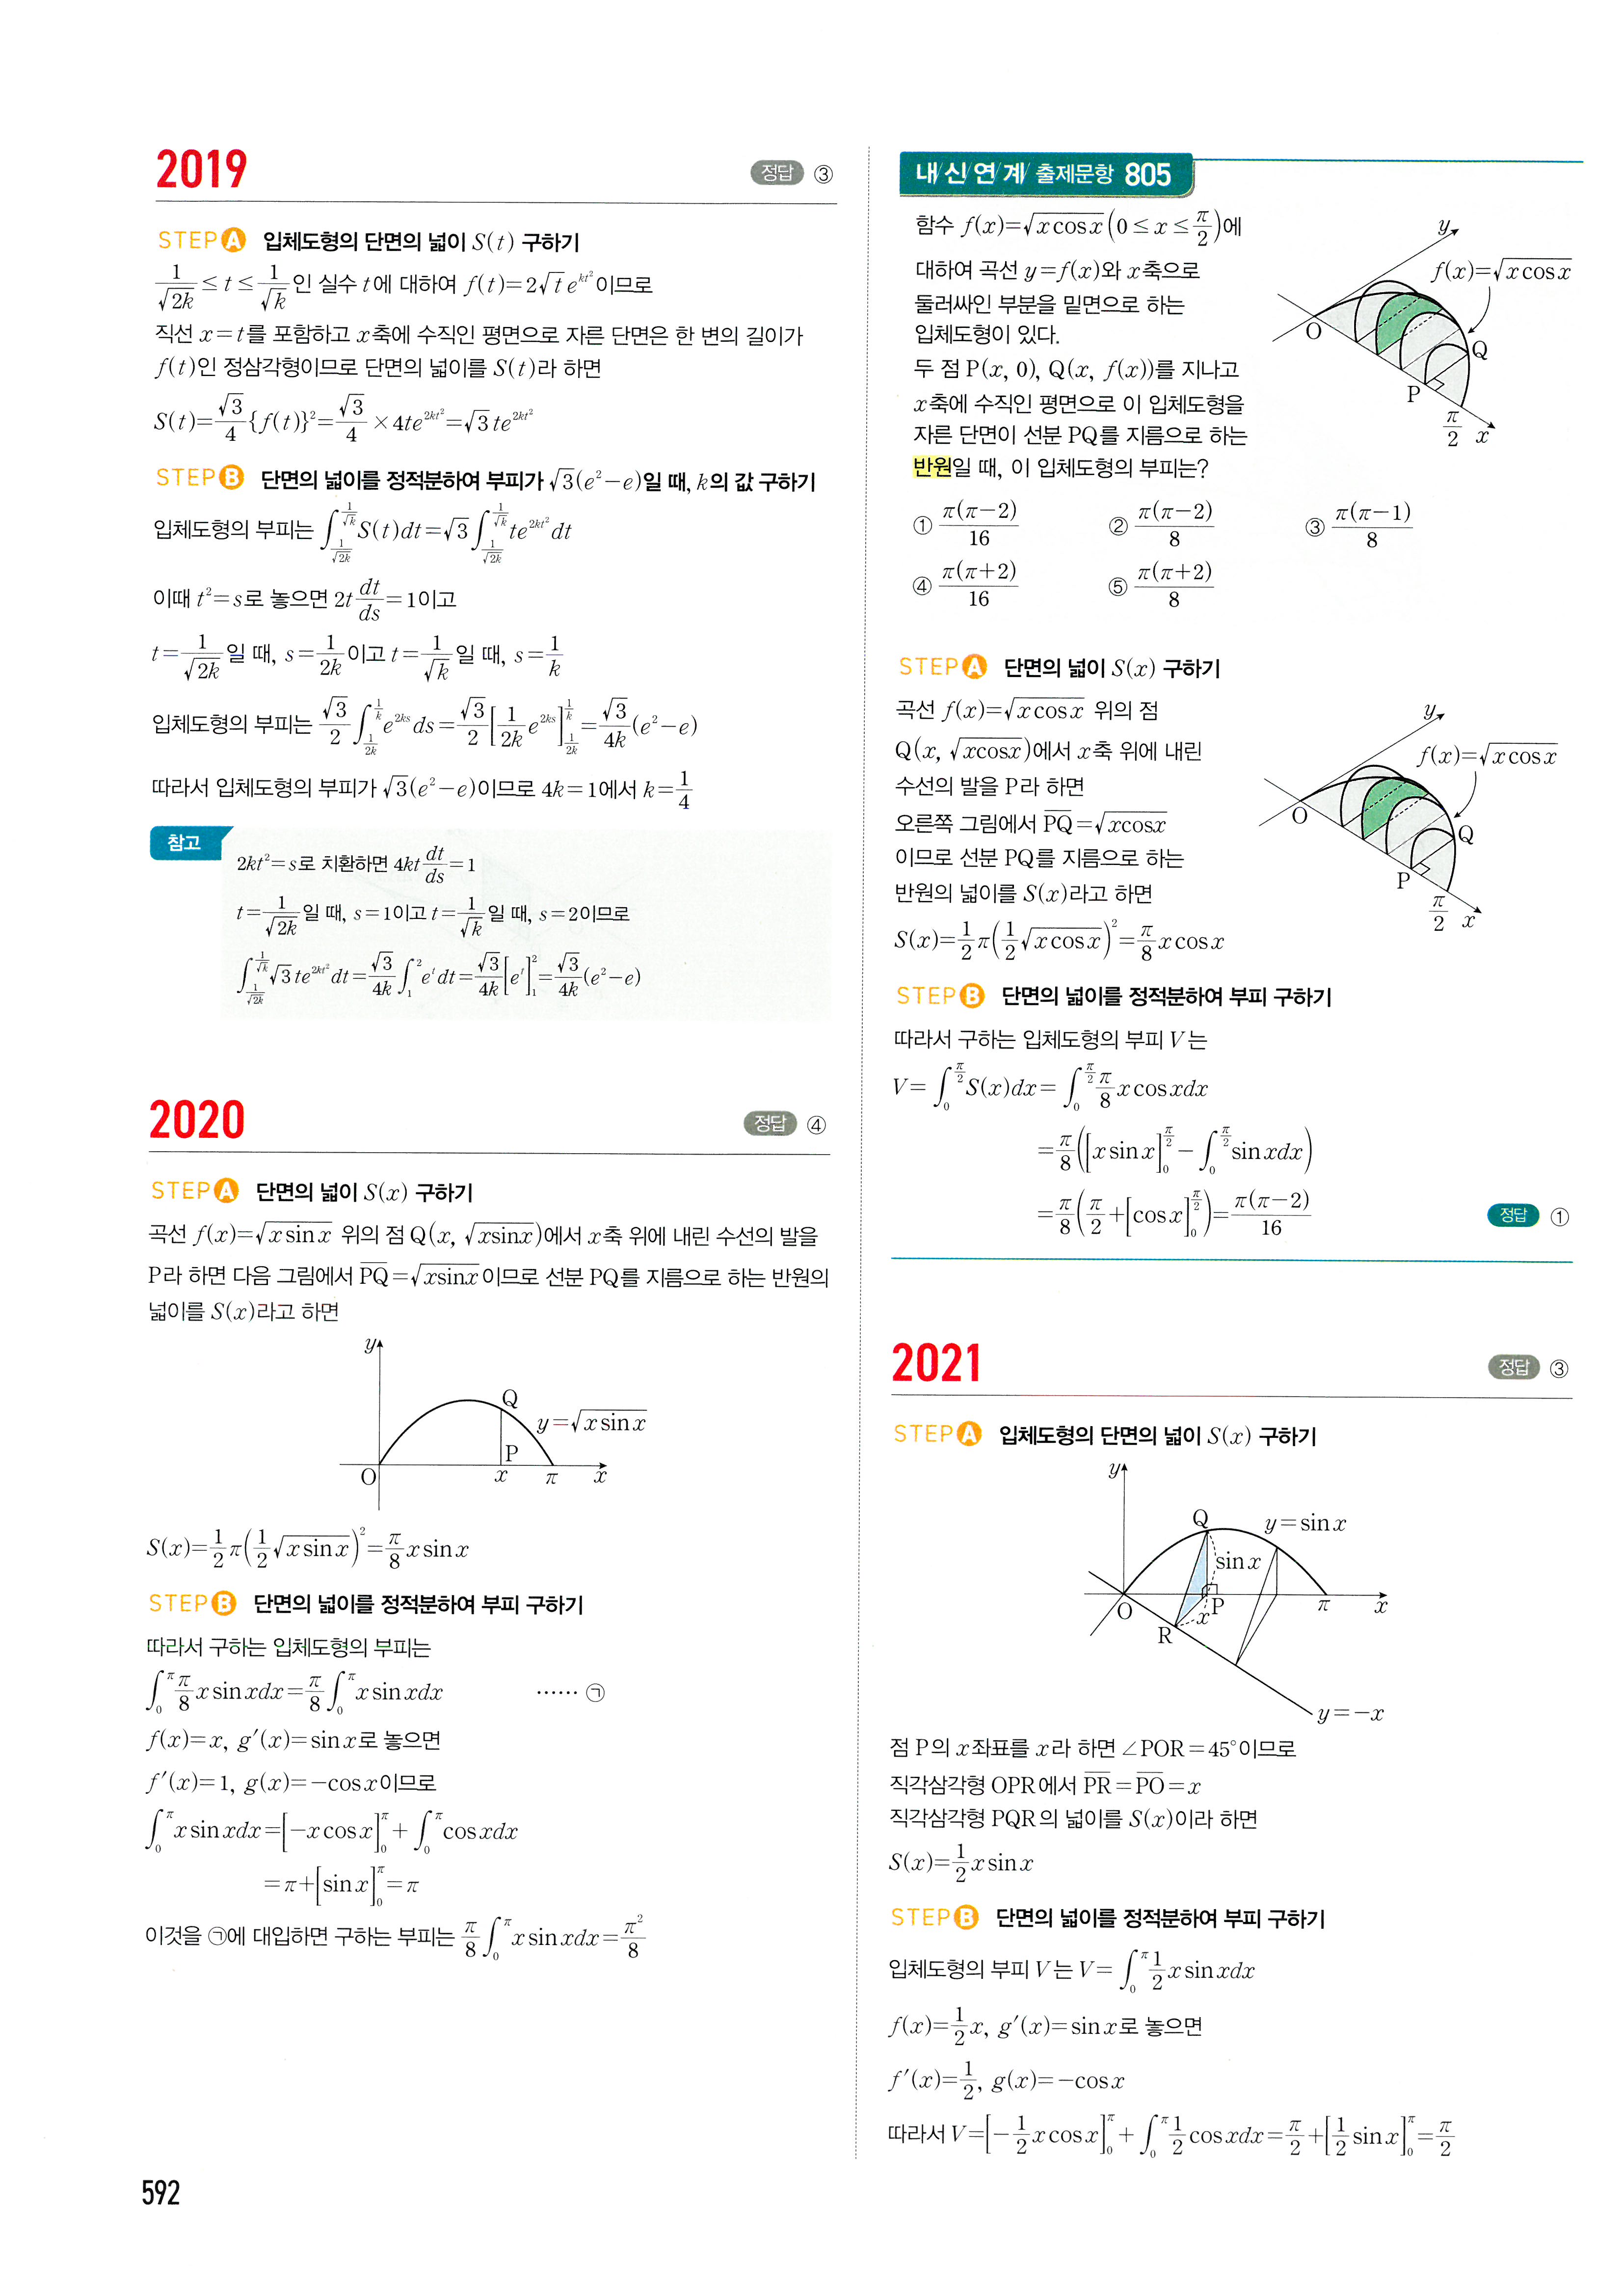 2019
정답 ③
STEP A 입체도형의 단면의 넓이 S(t) 구하기
1/√(2k) ≤ t ≤ 1/√k인 실수 t에 대하여 f(t)=2√t e^(kt²)이므로
직선 x=t를 포함하고 x축에 수직인 평면으로 자른 단면은 한 변의 길이가
f(t)인 정삼각형이므로 단면의 넓이를 S(t)라 하면
S(t)=√3/4 {f(t)}²=√3/4 ×4te^(2kt²)=√3 te^(2kt²)
STEP B 단면의 넓이를 정적분하여 부피가 √3(e²−e)일 때, k의 값 구하기
입체도형의 부피는 ∫_(1/√(2k))^(1/√k) S(t)dt=√3∫_(1/√(2k))^(1/√k) te^(2kt²)dt
이때 t²=s로 놓으면 2t dt/ds=1이고
t=1/√(2k)일 때, s=1/2k이고 t=1/√k일 때, s=1/k
입체도형의 부피는 √3/2 ∫_(1/2k)^(1/k) e^(2ks) ds=√3/2 [1/2k e^(2ks)]_(1/2k)^(1/k)=√3/4k (e²−e)
따라서 입체도형의 부피가 √3(e²−e)이므로 4k=1에서 k=1/4
참고
2kt²=s로 치환하면 4kt dt/ds=1
t=1/√(2k)일 때, s=1이고 t=1/√k일 때, s=2이므로
∫_(1/√(2k))^(1/√k) √3 te^(2kt²)dt=√3/4k ∫_1^2 e^t dt=√3/4k [e^t]_1^2=√3/4k (e²−e)
2020
정답 ④
STEP A 단면의 넓이 S(x) 구하기
곡선 f(x)=√(x sin x) 위의 점 Q(x, √(x sin x))에서 x축 위에 내린 수선의 발을
P라 하면 다음 그림에서 PQ=√(x sin x)이므로 선분 PQ를 지름으로 하는 반원의
넓이를 S(x)라고 하면
y
Q
y=√(x sin x)
P
O x π x
S(x)=1/2 π(1/2 √(x sin x))²=π/8 x sin x
STEP B 단면의 넓이를 정적분하여 부피 구하기
따라서 구하는 입체도형의 부피는
∫_0^π π/8 x sin xdx=π/8 ∫_0^π x sin xdx …… ㉠
f(x)=x, g′(x)=sin x로 놓으면
f′(x)=1, g(x)=−cos x이므로
∫_0^π x sin xdx=[−x cos x]_0^π+∫_0^π cos xdx
=π+[sin x]_0^π=π
이것을 ㉠에 대입하면 구하는 부피는 π/8 ∫_0^π x sin xdx=π²/8
592
내/신/연/계/ 출제문항 805
함수 f(x)=√(x cos x) (0≤x≤π/2)에
대하여 곡선 y=f(x)와 x축으로
둘러싸인 부분을 밑면으로 하는
입체도형이 있다.
두 점 P(x, 0), Q(x, f(x))를 지나고
x축에 수직인 평면으로 이 입체도형을
자른 단면이 선분 PQ를 지름으로 하는
반원일 때, 이 입체도형의 부피는?
y
f(x)=√(x cos x)
O
Q
P
π/2 x
① π(π−2)/16 ② π(π−2)/8 ③ π(π−1)/8
④ π(π+2)/16 ⑤ π(π+2)/8
STEP A 단면의 넓이 S(x) 구하기
곡선 f(x)=√(x cos x) 위의 점
Q(x, √(x cos x))에서 x축 위에 내린
수선의 발을 P라 하면
오른쪽 그림에서 PQ=√(x cos x)
이므로 선분 PQ를 지름으로 하는
반원의 넓이를 S(x)라고 하면
S(x)=1/2 π(1/2 √(x cos x))²=π/8 x cos x
y
f(x)=√(x cos x)
O
Q
P
π/2 x
STEP B 단면의 넓이를 정적분하여 부피 구하기
따라서 구하는 입체도형의 부피 V는
V=∫_0^(π/2) S(x)dx=∫_0^(π/2) π/8 x cos xdx
=π/8 ([x sin x]_0^(π/2)−∫_0^(π/2) sin xdx)
=π/8 (π/2+[cos x]_0^(π/2))=π(π−2)/16
정답 ①
2021
정답 ③
STEP A 입체도형의 단면의 넓이 S(x) 구하기
y
Q
y=sin x
sin x
O
P
x
R
π x
y=−x
점 P의 x좌표를 x라 하면 ∠POR=45°이므로
직각삼각형 OPR에서 PR=PO=x
직각삼각형 PQR의 넓이를 S(x)이라 하면
S(x)=1/2 x sin x
STEP B 단면의 넓이를 정적분하여 부피 구하기
입체도형의 부피 V는 V=∫_0^π 1/2 x sin xdx
f(x)=1/2 x, g′(x)=sin x로 놓으면
f′(x)=1/2, g(x)=−cos x
따라서 V=[−1/2 x cos x]_0^π+∫_0^π 1/2 cos xdx=π/2+[1/2 sin x]_0^π=π/2